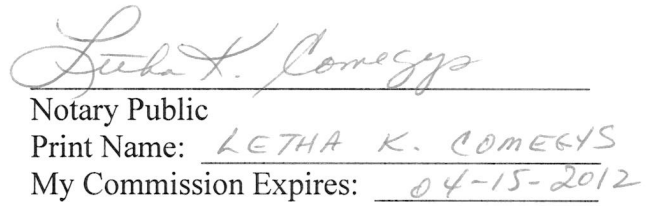 Letha K. Comegys
Notary Public
Print Name: LETHA K. COMEGYS
My Commission Expires: 04-15-2012